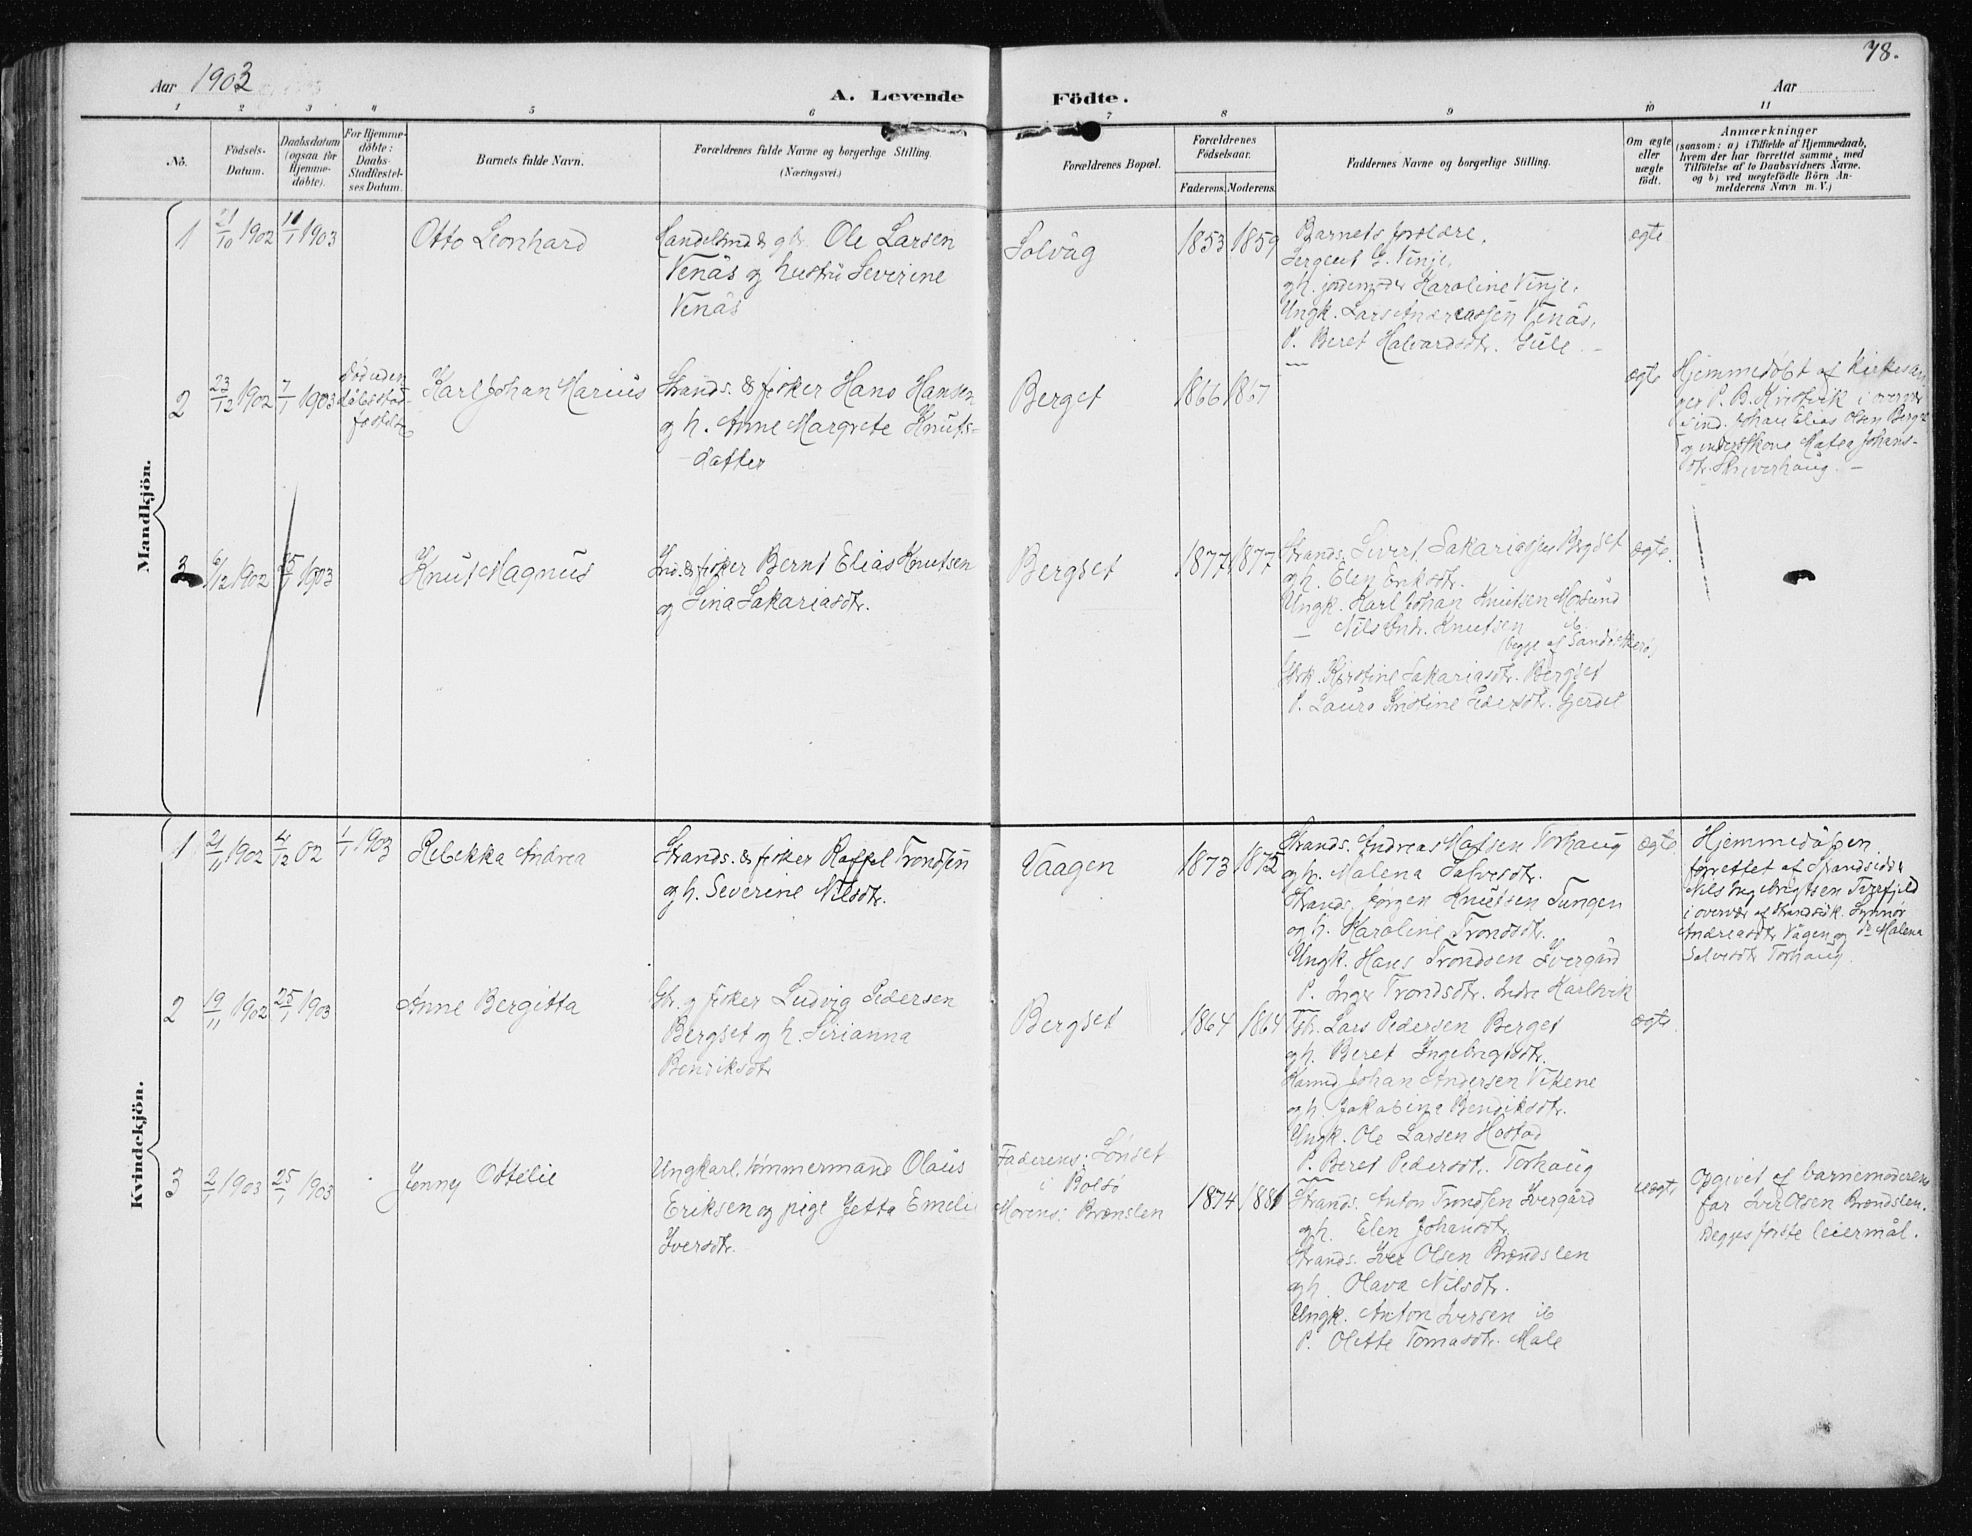 78.
Aar 1903
A. Levende Födte.
Aar
1 2 3 4 5 6 7 8 9 10 11
No.
Födsels-Datum.
Daabsdatum (ogsaa for Hjemme-döbte).
For Hjemme-döbte: Daabs-Stadfæstel-ses Datum.
Barnets fulde Navn.
Forældrenes fulde Navne og borgerlige Stilling. (Næringsvei.)
Forældrenes Bopæl.
Forældrenes Födselsaar.
Faderens. Moderens.
Faddernes Navne og borgerlige Stilling.
Om ægte eller uægte födt.
Anmærkninger
(saasom: a) i Tilfælde af Hjemmedaab,
hvem der har forrettet samme, med
Tilföielse af to Daabsvidners Navne.
og b) ved uægtefödte Börn An-
melderens Navn m. V.)
Mandkjön.
1 21/10 1902 11/1 1903
Otto Leonhard
Ole Larsen
Venäs og hustru Severine
Venäs
Solvåg
1853 1859
Barnets forældre,
Sergent G. Vinje,
Karoline Vinje,
Ungk. Lars Andreassen Venäs,
P. Beret Halvardsdtr. Sule
ægte
2 23/12 1902 7/1 1903
død uden
Karl Johan Marius
Strands. & fisker Hans Hansen
og h. Anne Margrete Knuts-
datter
Berget
1866 1867
ægte
Hjemmedøbt af Kirkesan-
ger P. B. i overvær
af ind. Johan Elias Olsen Berget
og Matea Johans-
dtr. Skriverhaug.
3 6/12 1902 25/1 1903
Knut Magnus
Ind. & fisker Bernt Elias Knutsen
og Lina Sakariasdtr.
Bergset
1877 1877
Strands. Sivert Sakariassen Bergset
og h. Elen Eriksdtr.
Ungk. Karl Johan Knutsen Mosund
— Nils Andr. Knutsen do.
(begge af
Kirstine Sakariasdtr. Bergset
P. Laura Kristine Pedersdtr. Gjerdet
ægte.
Kvindekjön.
1 2/11 1902 4/12 02 1/1 1903
Rebekka Andrea
Strands. & fisker Raffel Trondsen
og h. Severine Nilsdtr.
Vaagen
1873 1875
Strands. Andreas Matsen Torhaug
og h. Malena Salvesdtr.
Strands. Jørgen Knutsen Tungen
og h. Karoline Trondsdtr.
Ungk. Hans Trondsen Ivergård
P. Inger Trondsdtr. Indre Karlsvik
ægte
Hjemmedåpen
forrettet af Strandsidder
Nils
i overvær af
Andreasdtr. Vågen og do Malena
Salvesdtr. Torhaug.
2 19/11 1902 25/1 1903
Anne Bergitta
Gbr. og fisker Ludvig Pedersen
Bergset og h. Sirianna
Bendiksdtr
Bergset
1864 1864
Lars Pedersen Berget
og h. Beret Ingebrigtsdtr.
Johan Andersen Vikene
og h. Jakobine Bendiksdtr.
Ungk. Ole Larsen Hostad
P. Beret Pedersdtr. Torhaug
ægte
3 2/1 1903 25/1 1903
Jenny Ottelie
Ungkarl, tømmermand Olaus
Eriksen og pige Jetta Emelie
Iversdtr.
Faderens: Lønset
i Bolsø
Morens: Brænslen
1874 1881
Strands. Anton Trondsen Ivergård
og h. Elen Johansdtr.
Strands. Iver Olsen Brændslen
og h. Olava Nilsdtr.
Ungk. Anton Iversen ib
P. Olette Tomasdtr. Male
uægte
Opgivet af barnemoderens
far Iver Olsen Brændslen.
Begges første leiermål.